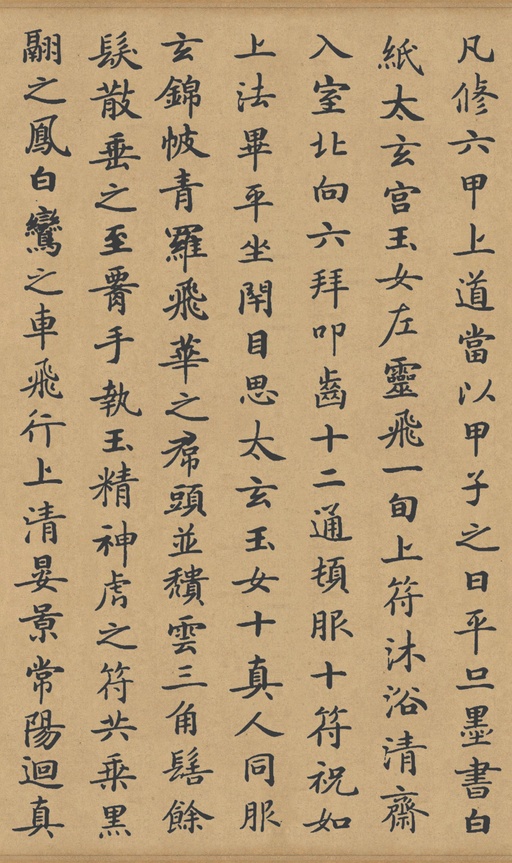 凡修六甲上道當以甲子之日平旦墨書白
紙太玄宮玉女左靈飛一旬上符沐浴清齋
入室北向六拜叩齒十二通頓服十符祝如
上法畢平坐閇目思太玄玉女十真人同服
玄錦帔青羅飛華之帬頭並穨雲三角髻餘
髮散垂之至䯒手執玉精神虎之符共乗黑
翮之鳳白鸞之車飛行上清晏景常陽迴真